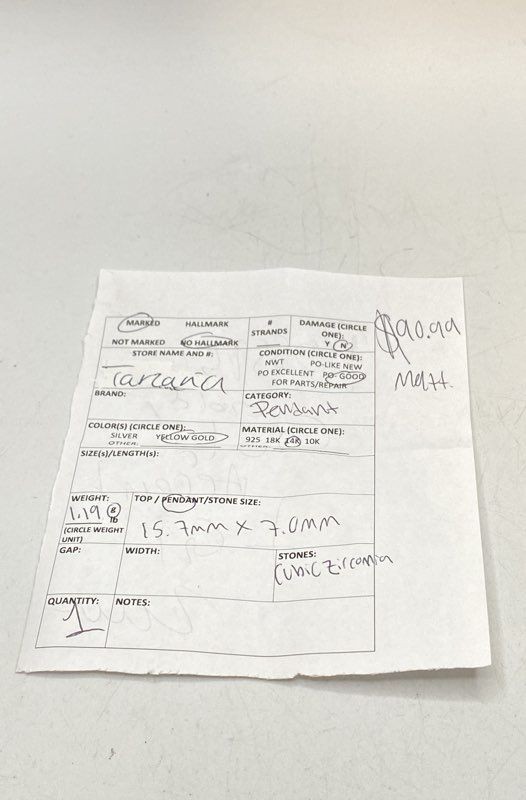 MARKED HALLMARK # STRANDS DAMAGE (CIRCLE ONE):
NOT MARKED NO HALLMARK Y N
$90.99
STORE NAME AND #: CONDITION (CIRCLE ONE):
NWT PO-LIKE NEW
Tanzania PO EXCELLENT PO- GOOD
FOR PARTS/REPAIR
Matt.
BRAND: CATEGORY:
Pendant
COLOR(S) (CIRCLE ONE): MATERIAL (CIRCLE ONE):
SILVER YELLOW GOLD 925 18K 14K 10K
OTHER: OTHER:
SIZE(s)/LENGTH(s):
WEIGHT: TOP / PENDANT/STONE SIZE:
1.19 g
lb
15.7mm x 7.0mm
(CIRCLE WEIGHT UNIT)
GAP: WIDTH: STONES:
Cubic Zirconia
QUANTITY: NOTES:
1